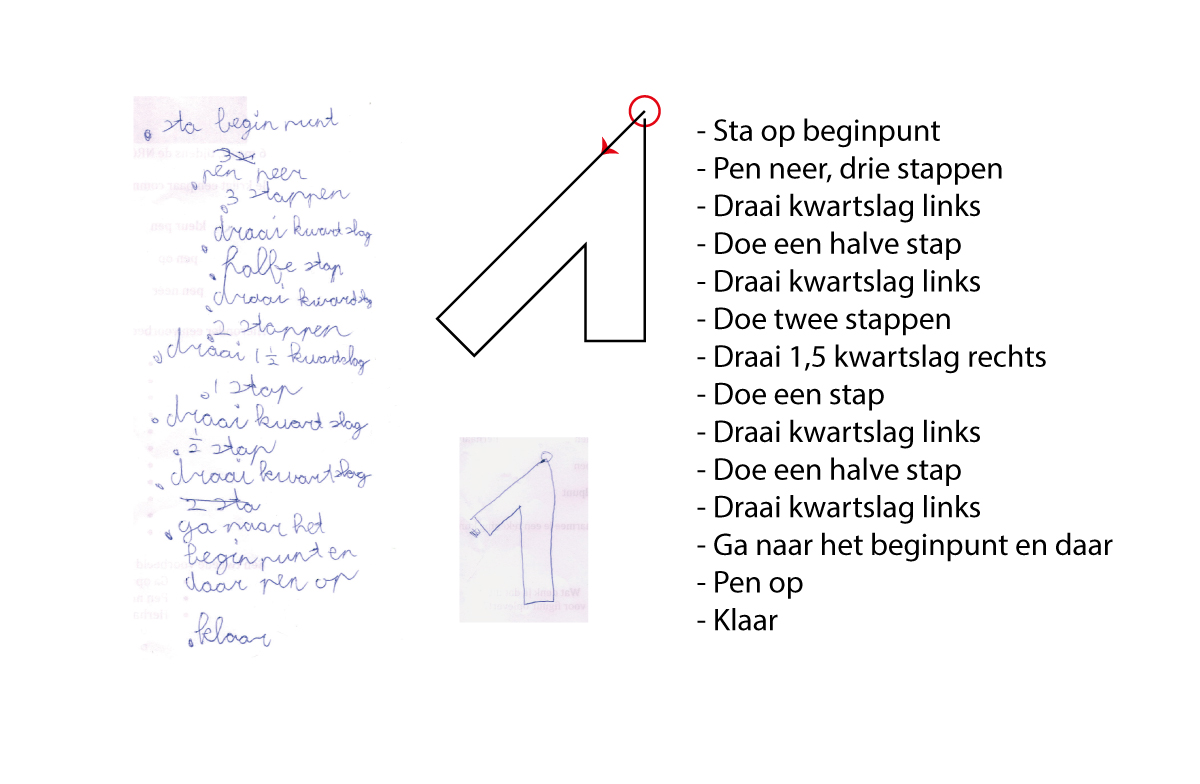 sta beginpunt
3 st
pen neer
3 stappen
draai kwartslag
halfe stap
draai kwardslag
2 stappen
draai 1 ½ kwardslag
1 stap
draai kwart slag
½ stap
draai kwartslag
2 sta
ga naar het
beginpunt en
daar pen op
klaar
- Sta op beginpunt
- Pen neer, drie stappen
- Draai kwartslag links
- Doe een halve stap
- Draai kwartslag links
- Doe twee stappen
- Draai 1,5 kwartslag rechts
- Doe een stap
- Draai kwartslag links
- Doe een halve stap
- Draai kwartslag links
- Ga naar het beginpunt en daar
- Pen op
- Klaar